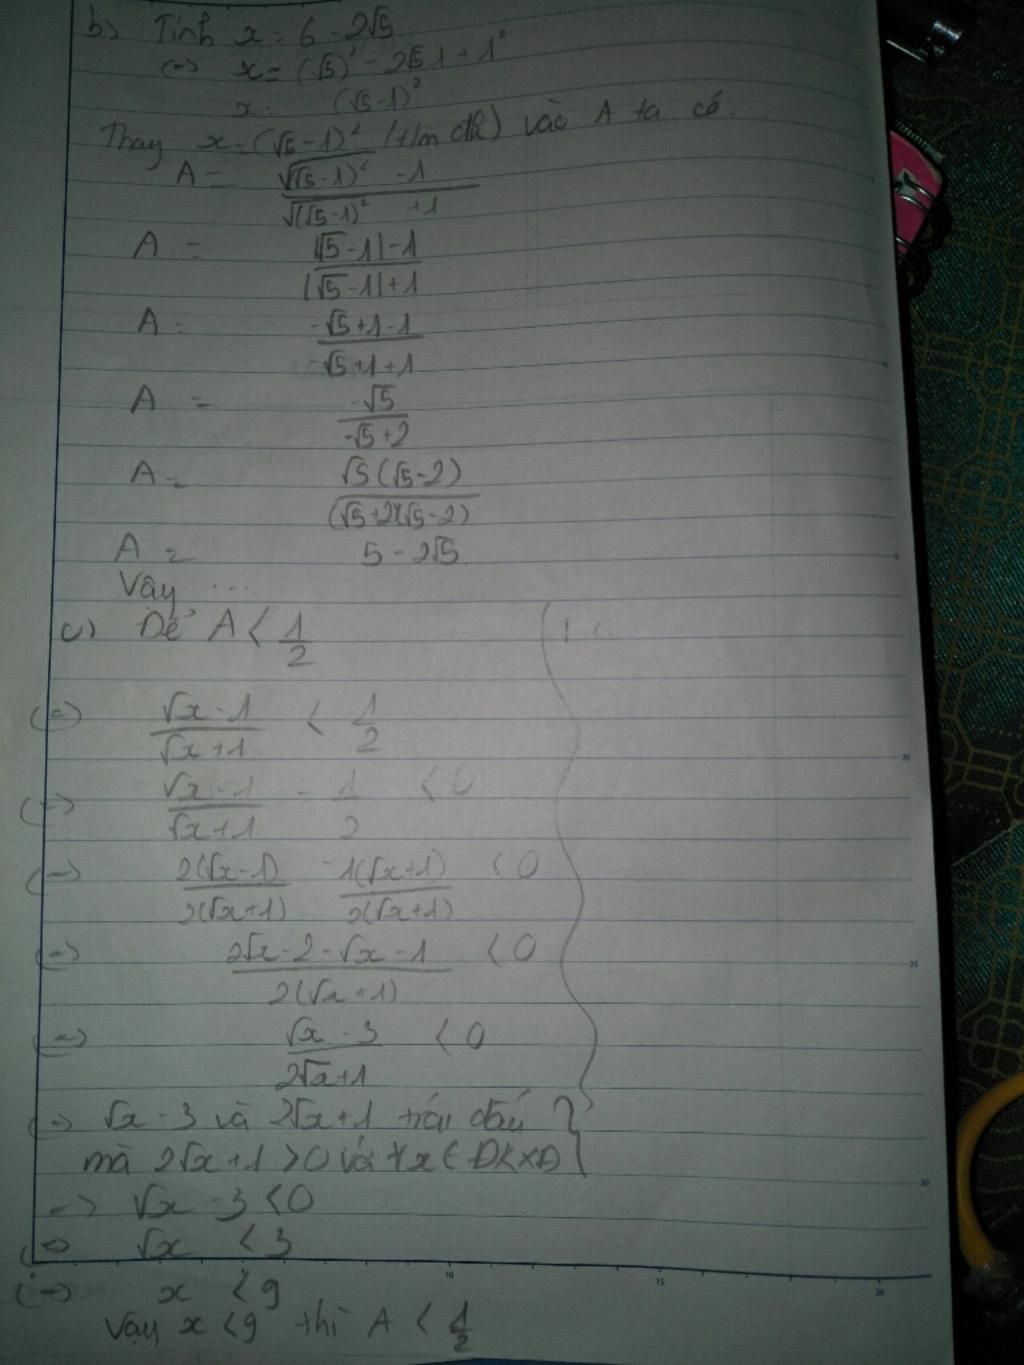 b) Tính x = 6 - 2√5
(=) x = (√5)² - 2√5.1 + 1²
x = (√5-1)²
Thay x = (√5-1)² (t/m đk) vào A ta có
A = √(√5-1)² - 1 / √(√5-1)² + 1
A = |√5-1|-1 / |√5-1|+1
A = -√5+1-1 / -√5+1+1
A = -√5 / -√5+2
A = √5(√5-2) / (√5+2)(√5-2)
A = 5 - 2√5
Vậy ...
c) Để A < 1/2
(=) √x-1 / √x+1 < 1/2
(=) √x-1 / √x+1 - 1/2 < 0
(=) 2(√x-1) / 2(√x+1) - 1(√x+1) / 2(√x+1) < 0
(=) 2√x-2-√x-1 / 2(√x+1) < 0
(=) √x-3 / 2√x+1 < 0
(=) √x-3 và 2√x+1 trái dấu
mà 2√x+1 >0 với ∀x ∈ ĐKXĐ
=) √x - 3 <0
(=) √x < 3
(=) x < 9
Vậy x < 9 thì A < 1/2
0 5 10 15 20